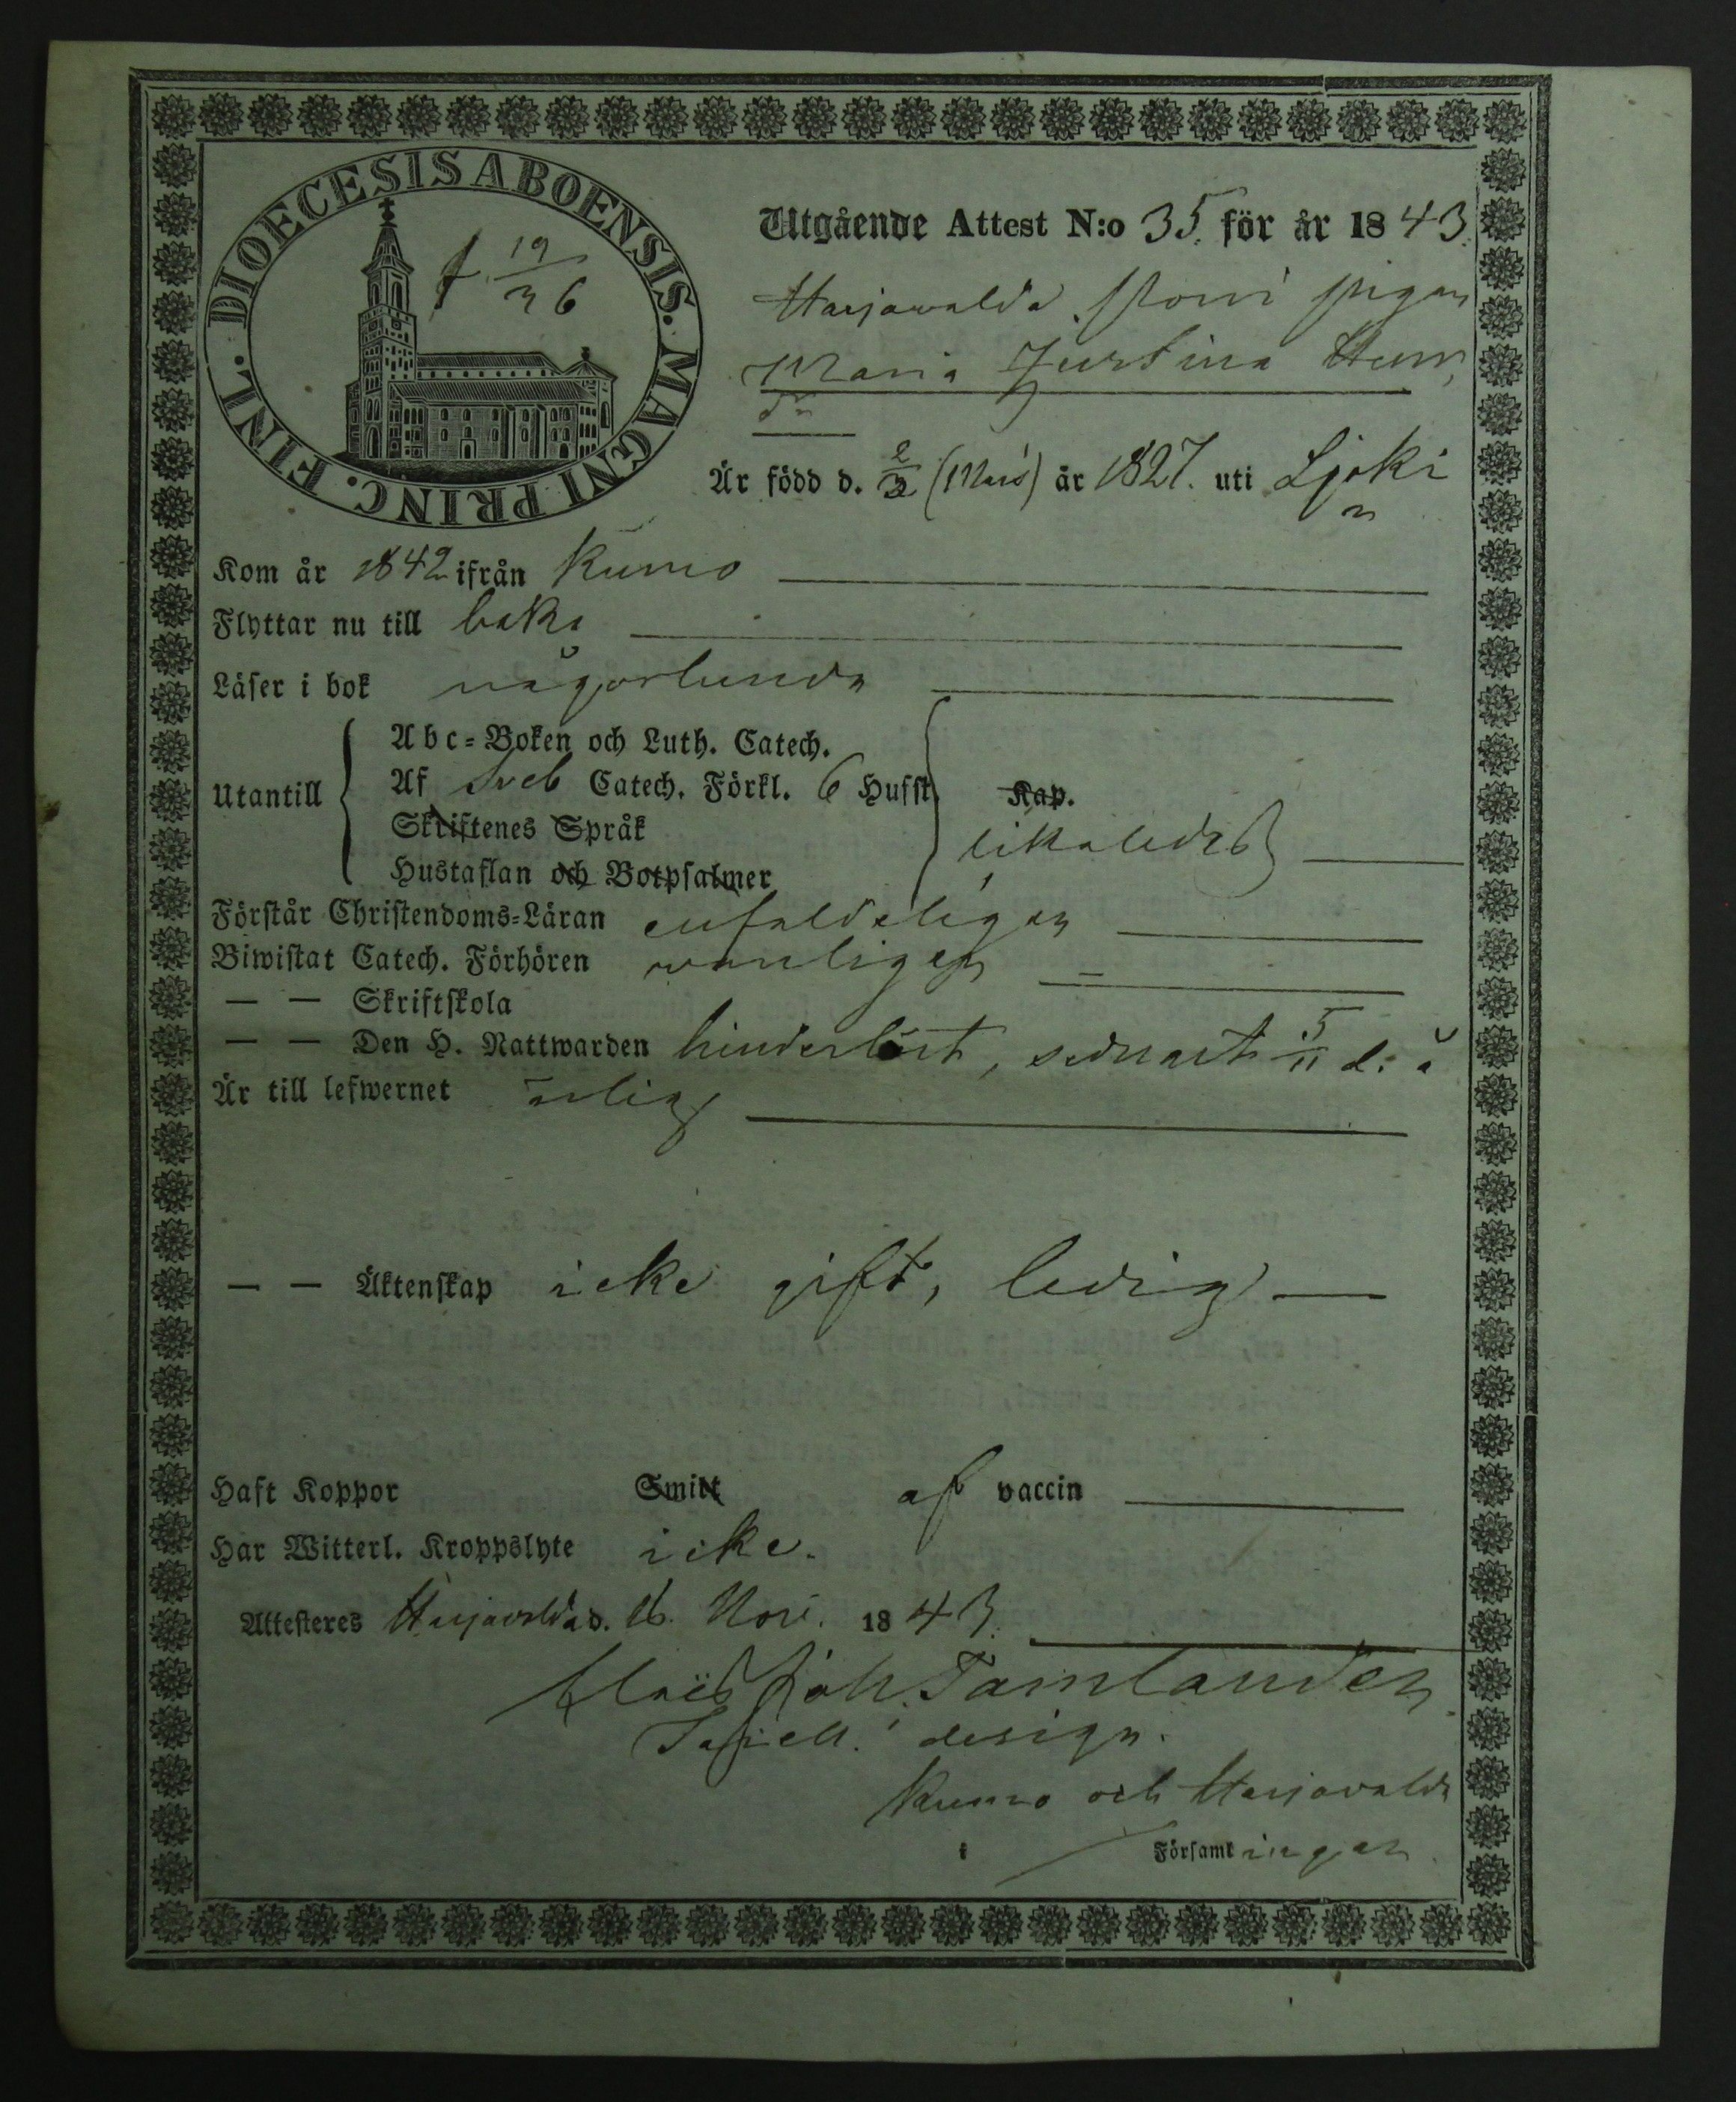 DIOECESIS ABOENSIS. MAGNI PRINC. FINL.
f 19/36
Utgående Attest N:o 35. för år 1843.
Harjawalda Storri pigan
Maria Justina Hen
dr
Är född d. 2/3 (Mars) år 1827. uti Loki
Kom år 1842 ifrån Kumo
Flyttar nu till baka
Läser i bok någorlunda
Utantill
Abc-Boken och Luth. Catech.
Af Sveb Catech. Förkl. 6 Hufst. Kap.
Skriftenes Språk
likaledes
Hustaflan och Botpsalmer
Förstår Christendoms-Läran enfaldeligen
Biwistat Catech. Förhören wanligen
— — Skriftskola
— — Den H. Nattwarden hinderlöst, sednast 5/11 d: å
Är till lefwernet ärlig
— — Äktenskap icke gift, ledig
Haft Koppor Smitt af vaccin
Har Witterl. Kroppslyte icke.
Attesteres Harjavalda d. 16. Nov. 1843.
Claës Joh. Tamlander
Sacell. design.
Kumo och Harjavalda
i Församlingar